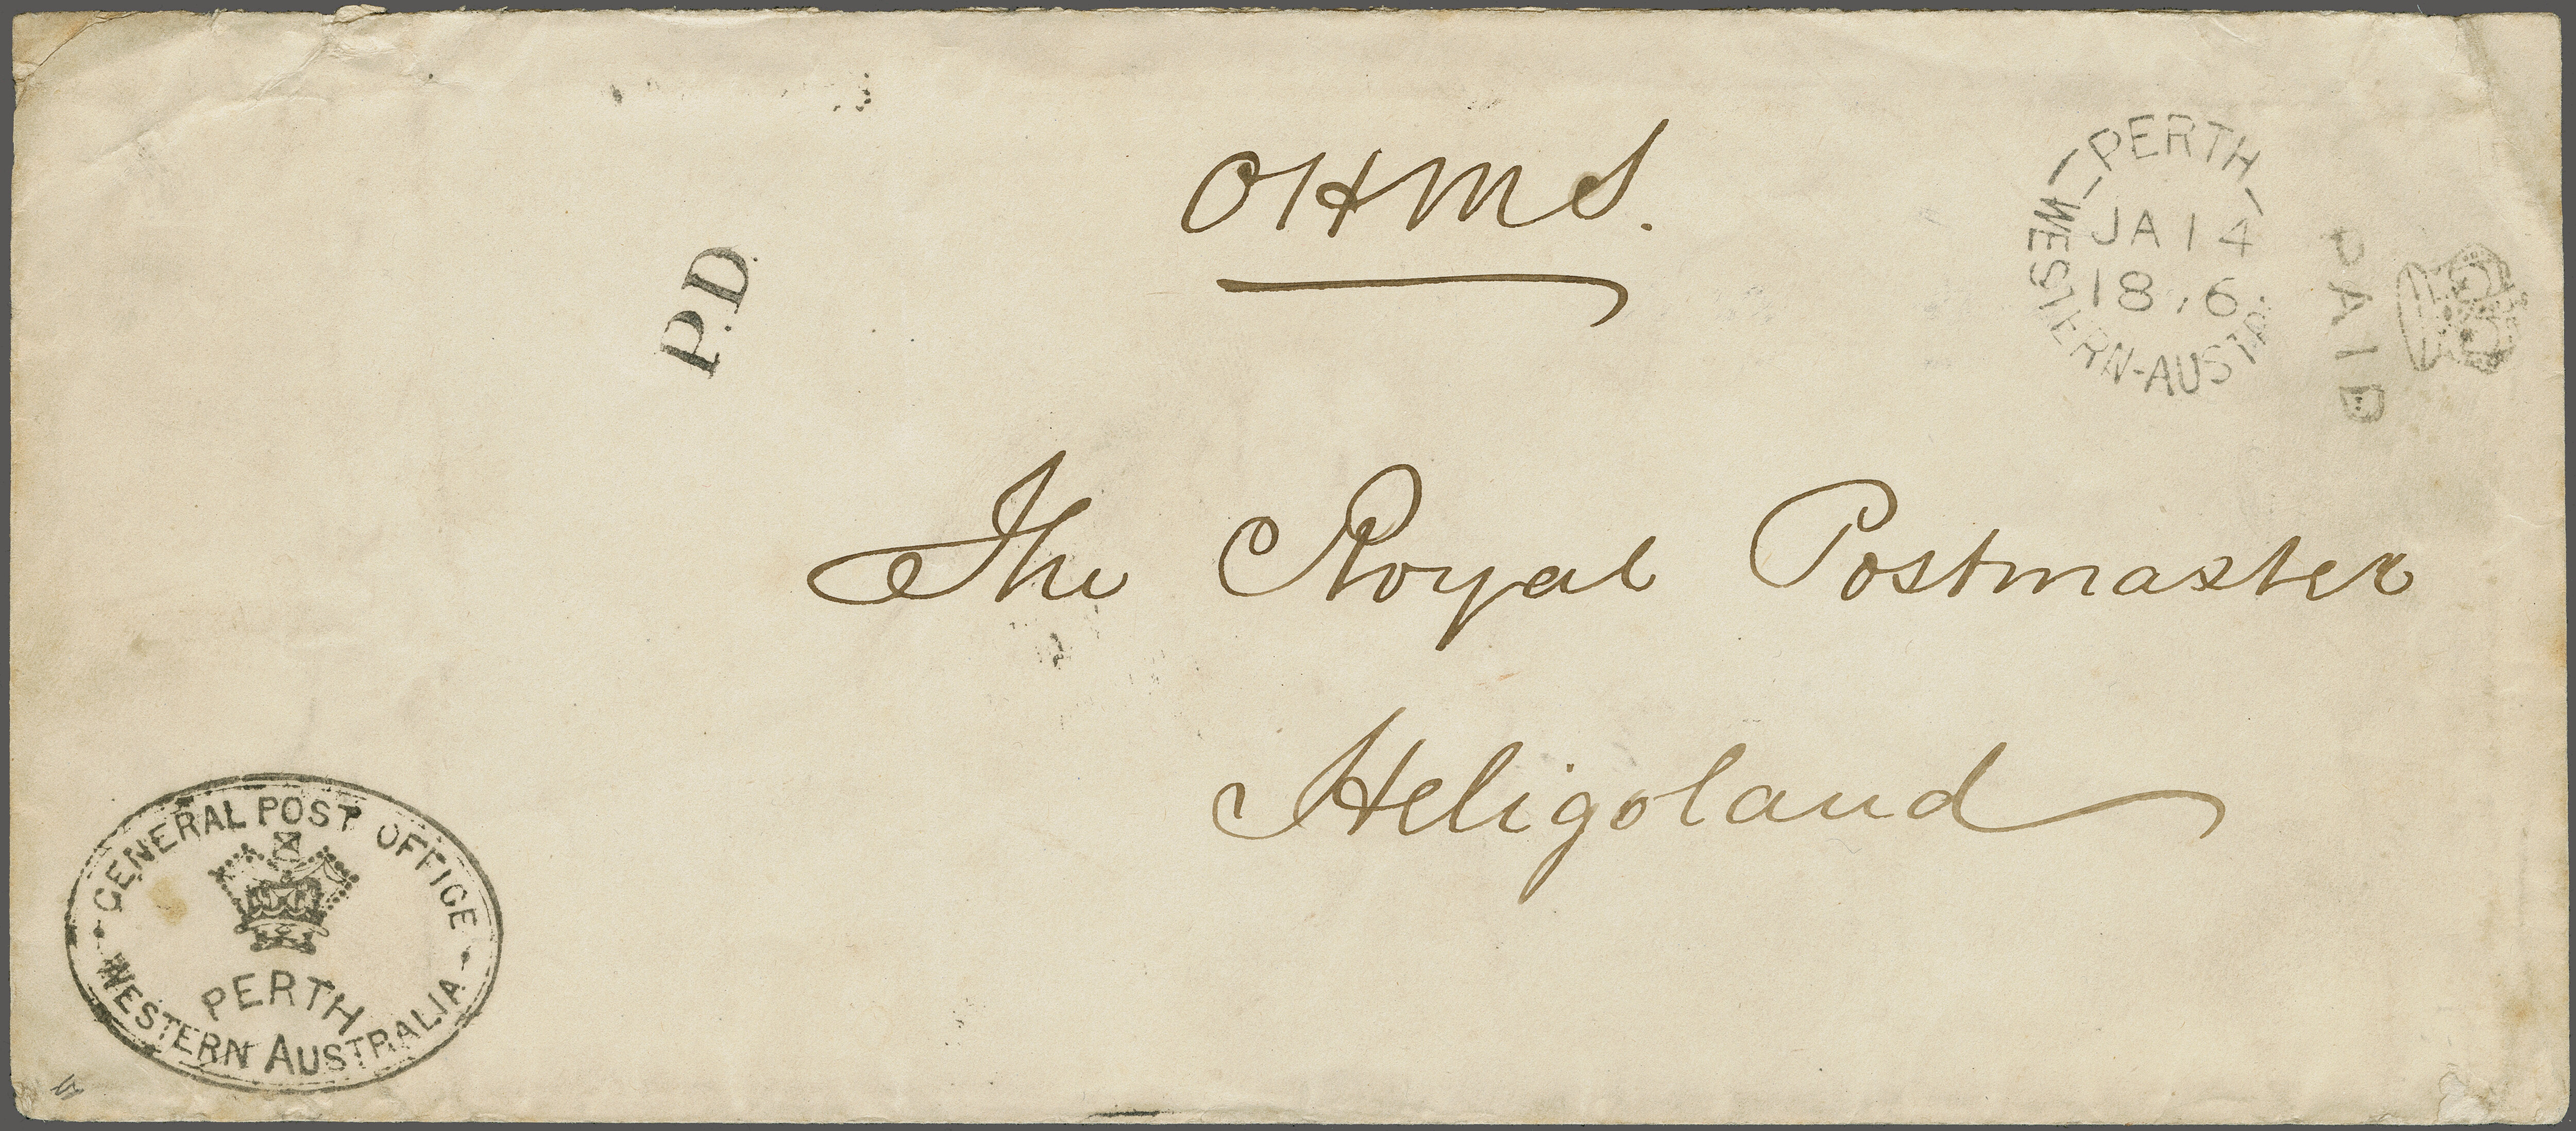 OHMS.
P.D.
PERTH
JA 14
WESTERN-AUSTR
PAID
The Royal Postmaster
Heligoland
GENERAL POST OFFICE
PERTH
WESTERN AUSTRALIA